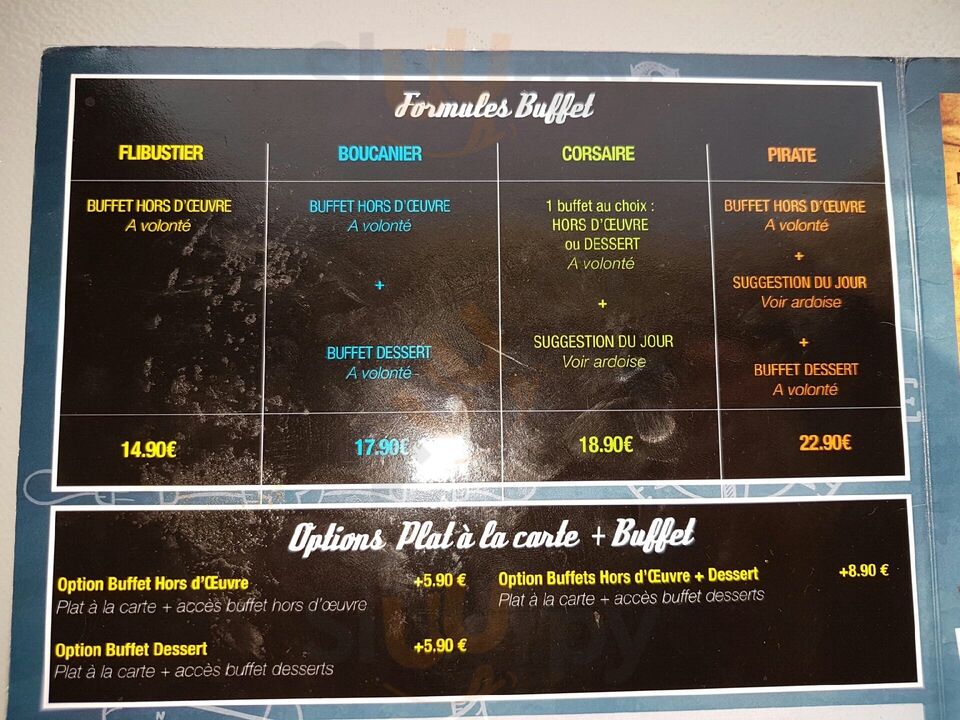 Formules Buffet
FLIBUSTIER
BUFFET HORS D'ŒUVRE
A volonté
14.90€
BOUCANIER
BUFFET HORS D'ŒUVRE
A volonté
+
BUFFET DESSERT
A volonté
17.90€
CORSAIRE
1 buffet au choix :
HORS D'ŒUVRE
ou DESSERT
A volonté
+
SUGGESTION DU JOUR
Voir ardoise
18.90€
PIRATE
BUFFET HORS D'ŒUVRE
A volonté
+
SUGGESTION DU JOUR
Voir ardoise
+
BUFFET DESSERT
A volonté
22.90€
Options Plat à la carte + Buffet
Option Buffet Hors d'Œuvre +5.90 €
Plat à la carte + accès buffet hors d'œuvre
Option Buffet Dessert +5.90 €
Plat à la carte + accès buffet desserts
Option Buffets Hors d'Œuvre + Dessert +8.90 €
Plat à la carte + accès buffet desserts